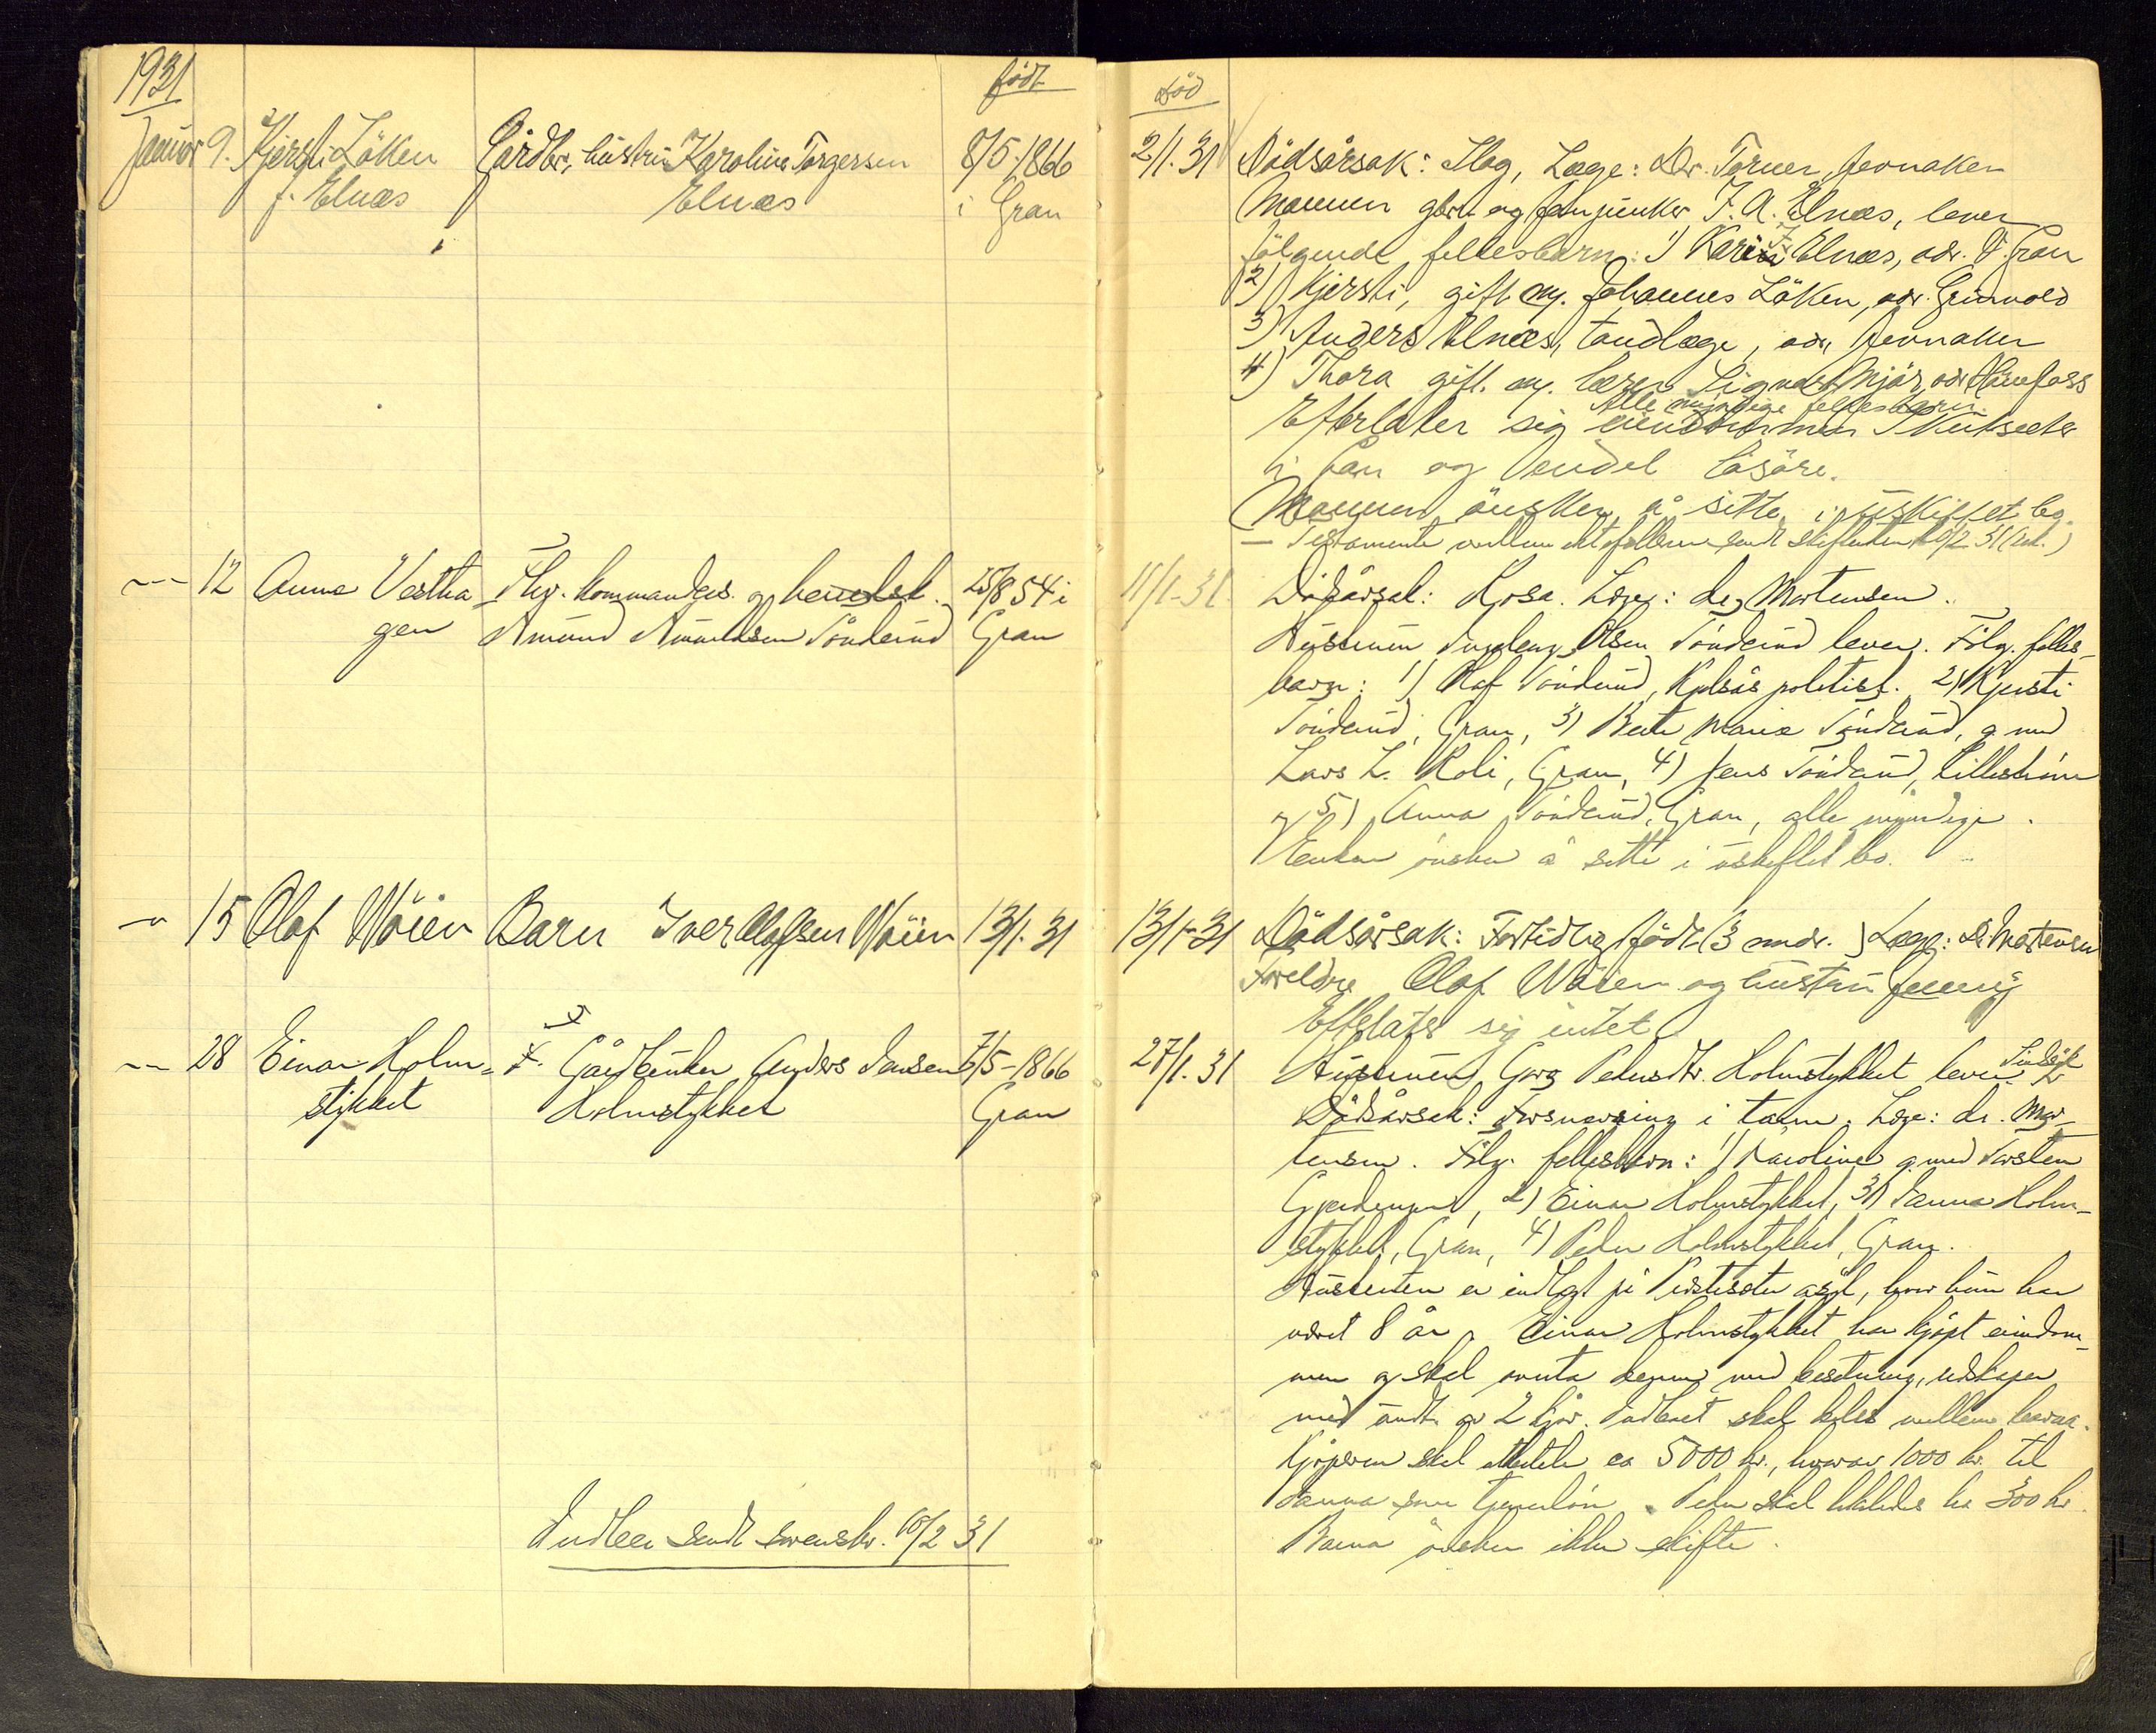 1931
født
Død
Januar 9. Kjersti Löken Gårdbr. hustru Karoline Torgersen 8/5.1866
f. Elnæs Elnæs i Gran
2/1.31 Dødsårsak: Slag, Læge: Dr. Torner, Jevnaker
Mannen gbr. og fanejunker T. A. Elnæs, lever
følgende fellesbarn: 1) Kari Elnæs, adr. Gran
2) Kjersti, gift m. Johannes Löken, adr. Grinvold
3) Anders Elnæs, tandlæge, adr. Jevnaker
4) Thora gift m. lærer Sigurd Mjör, adr. Hönefoss
Alle myndige fellesbarn.
Efterlater sig eiendommen
i Gran og endel lösöre.
Mannen önsker å sitte i uskiftet bo.
— Testamente mellem ektefellene sendt skifteretten 10/2 31
— 12 Anne Vestha Fhv. kommanders. og 25/8 54 i
gen Amund Amundsen Tönderud Gran
11/1-31. Dödsårsak: Kræ. Læge: dr. Mortensen.
Hustruen Ingeborg Olsen Tönderud lever. Fölg. felles-
barn: 1) Olaf Tönderud, Kjelsås politist. 2) Kjersti
Tönderud, Gran, 3) Berte Marie Tönderud, g. med
Lars L. Roli, Gran, 4) Jens Tönderud, Lilleström
og 5) Anna Tönderud, Gran, alle myndige.
Enken önsker å sitte i uskiftet bo.
— 15 Olaf Wöien Barn Iver Olafsen Wöien 13/1.31
13/1-31 Dødsårsak: Fortidlig født (3 mndr.) Læge: Dr. Mortensen
Foreldre Olaf Wöien og hustru Jenny
Efterlater sig intet
— 28 Einar Holm- F. Gårdbruker Anders Jensen 7/5-1866
stykket Holmstykket Gran
27/1.31 Hustruen Goro Pedersdtr. Holmstykket lever. Sindsyk
Dödsårsak: Forsnevring i tarm. Læge: dr. Mor-
tensen. Fölg. fellesbarn: 1) Karoline g. med Torsten
Gjerdengen, 2) Einar Holmstykket, 3) Janna Holm-
stykket, Gran, 4) Peder Holmstykket, Gran.
Hustruen er indlagt på asyl, hvor hun har
været 8 år. Einar Holmstykket har kjöpt eiendom-
men og skal overta denne med besetning, redskaper
med undt. av 2 kjör. Indboet skal deles mellem barna.
Kjöperen skal utbetale ca 5000 kr., hvorav 1000 kr. til
Janna som tjenerlön. Peder skal ha 300 kr.
Barna önsker ikke skifte.
Indber. sendt sorenskr. 10/2 31